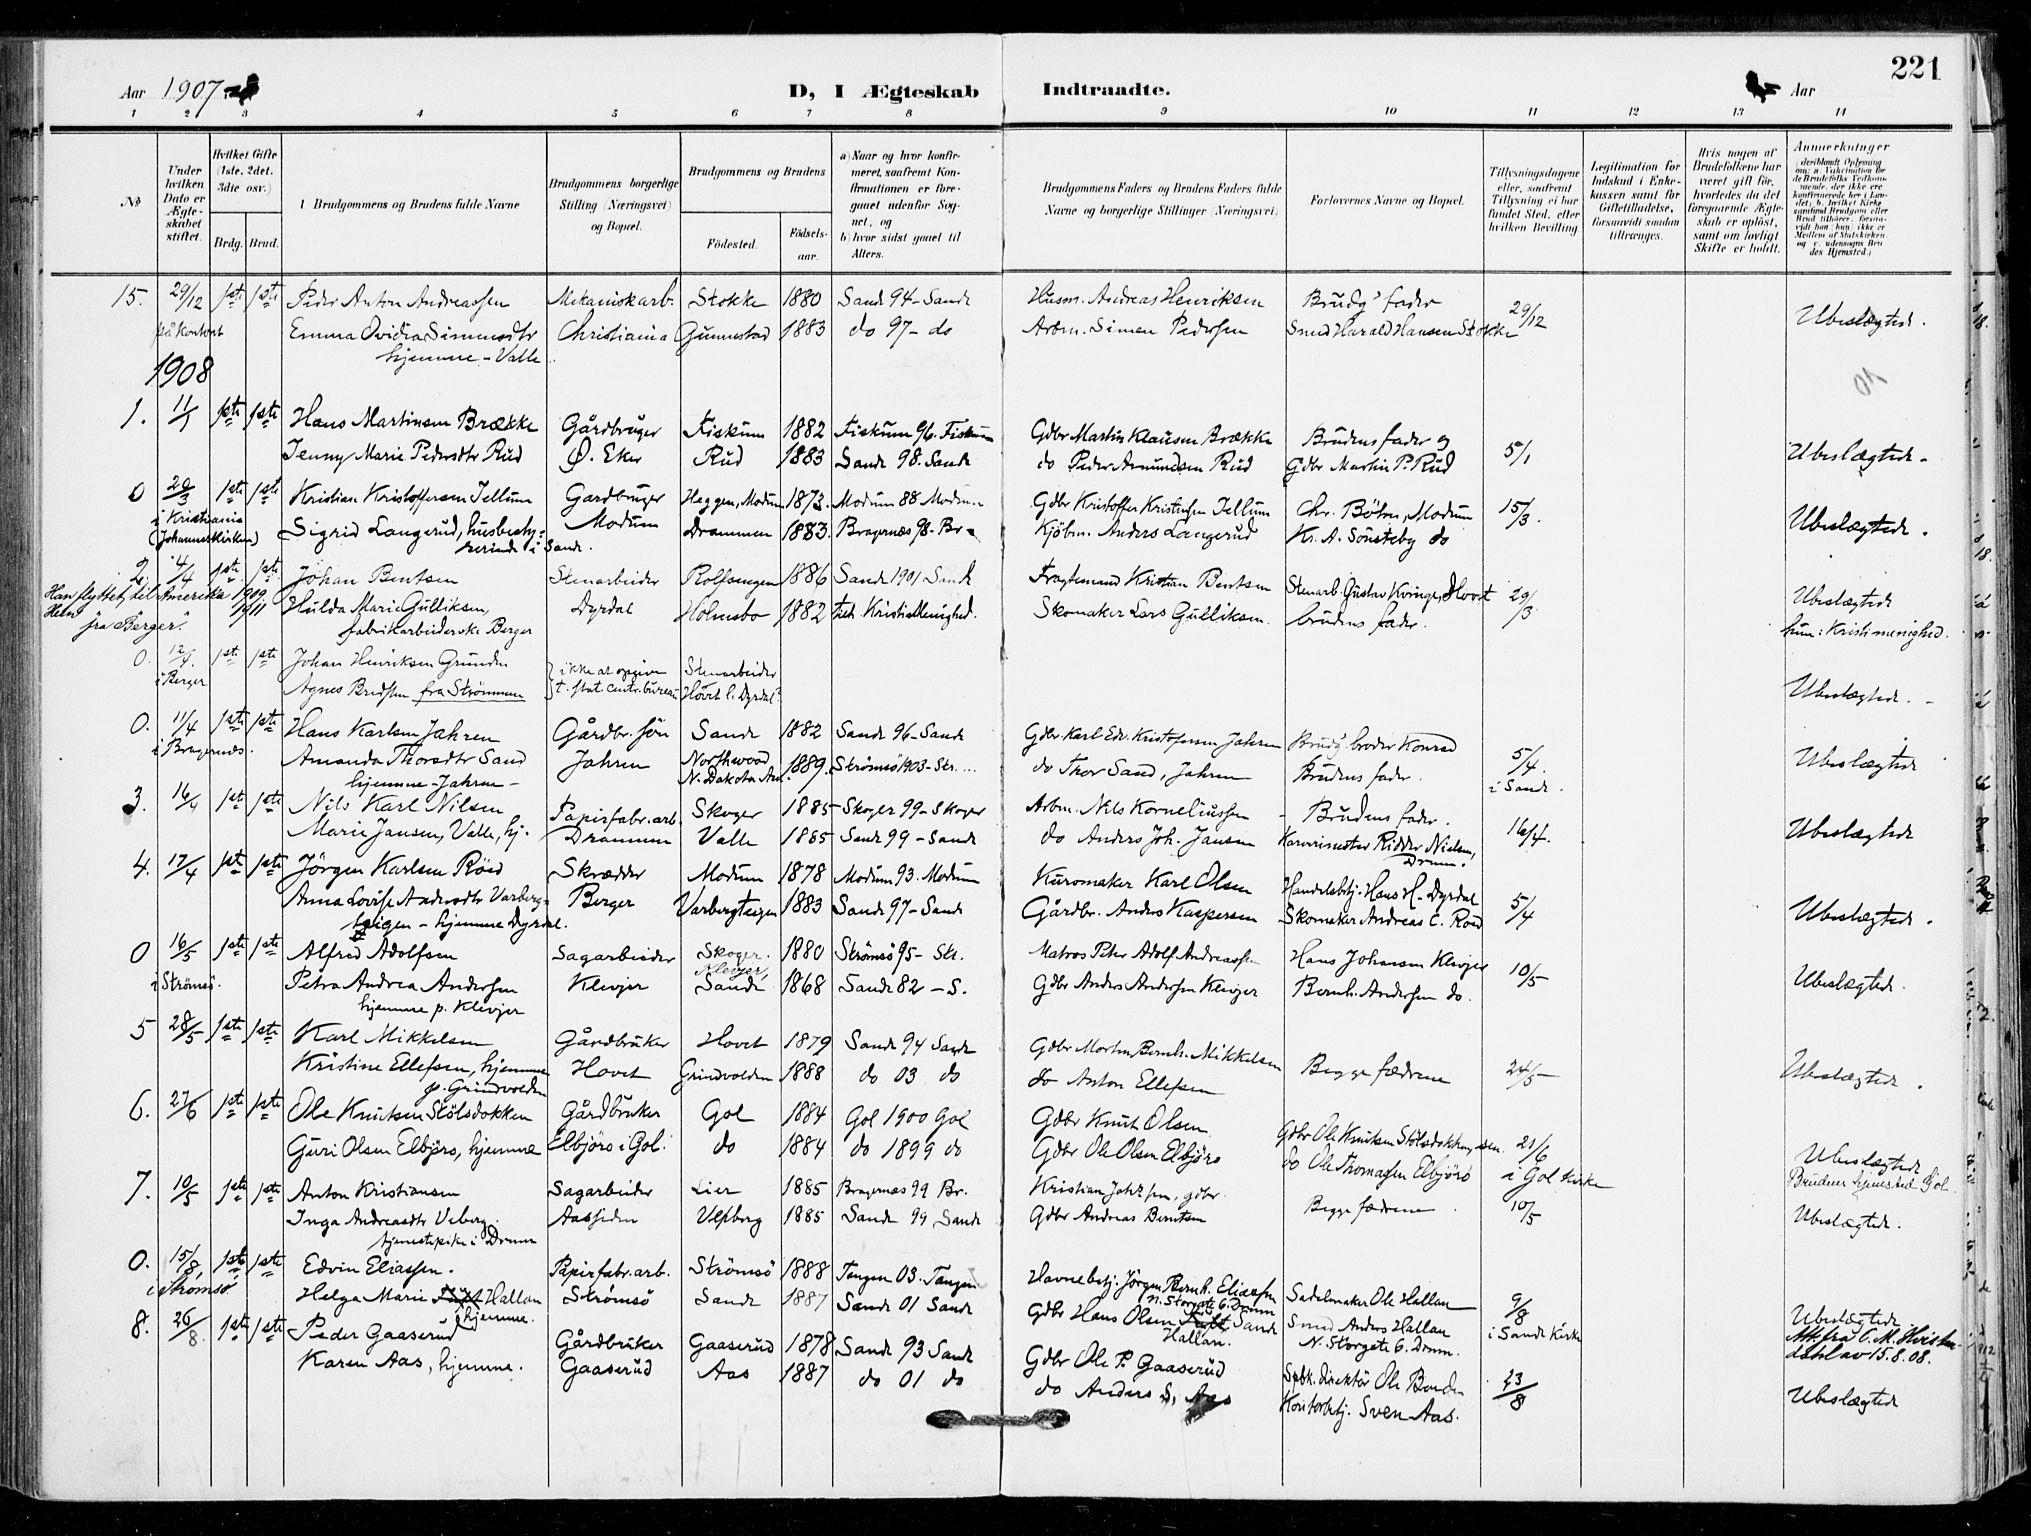 221
Aar 1907.
D, I Ægteskab Indtraadte.
Aar
1 2 3 4 5 6 7 8 9 10 11 12 13 14
No
Under hvilken Dato er Ægteskabet stiftet.
Hvilket Gifte (1ste, 2det, 3die osv.)
Brdg. Brud.
Brudgommens og Brudens fulde Navne
Brudgommens borgerlige Stilling (Næringsvei) og Bopæl.
Brudgommens og Brudens
Födested. Födsels-aar.
a) Naar og hvor konfirmeret, saafremt Konfirmationen er foregaaet udenfor Sognet, og
b) hvor sidst gaaet til Alters.
Brudgommens Faders og Brudens Faders fulde Navne og borgerlige Stillinger (Næringsvei)
Forlovernes Navne og Bopæl.
Tillysningsdagene eller, saafremt Tillysning ei har fundet Sted, efter hvilken Bevilling.
Legitimation for Indskud i Enkekassen samt for Giftetilladelse, forsaavidt saadan tiltrænges.
Hvis nogen af Brudefolkene har været gift før, hvorledes da det foregaaende Ægteskab er opløst, samt om lovligt Skifte er holdt.
Anmerkninger
15. 29/12 1ste 1ste Peder Anton Andreassen Mekaniskarb. Stokke 1880 Sande 94 - Sande Husm. Andreas Henriksen Brudg's fader 29/12 Ubeslægted.
på kontoret Emma Ovidia Simensdtr Christiania Gunnestad 1883 do 97 - do Arbm. Simen Pedersen Smed Harald Hansen Stokke
hjemme - Valle.
1908
1. 11/1 1ste 1ste Hans Martinsen Brække Gårdbruger Fiskum 1882 Fiskum 96. Fiskum Gdbr Martin Klausen Brække Brudens fader og 5/1 Ubeslægtede.
Jenny Marie Pedersdtr Rud Ø. Eker Rud 1883 Sande 98. Sande do Peder Amundsen Rud Gdbr Martin P. Rud
0 28/3 1ste 1ste Kristian Kristoffersen Tellum Gardbruger Heggen, Modum 1873. Modum 88 Modum Gdbr Kristoffer Kristensen Tellum Chr. Böhn, Modum 15/3. Ubeslægtede.
i Kristiania (Johanneskirken) Sigrid Langerud, husbesty- Modum Drammen 1883. Bragernæs 98. Br. Kjöbm. Anders Langerud Kr. A. Sönsteby do
rerinde i Sande.
2. 4/4 1ste 1ste Johan Bentsen Stenarbeider Rolfsvegen 1886 Sande 1901 Sande Fragtemand Kristian Bentsen Stenarb. Gustav Kvinge, Hovet 29/3 Ubeslægtede
Han flyttet til Amerika 1909
Hun 1911 fra Berger. Hulda Marie Gulliksen, Dyrdal Holmsbo 1882 Kristi Menighed. Skomaker Lars Gulliksen. brudens fader. hun: Kristi menighed.
fabrikarbeiderske Berger
0. 12/4. 1ste 1ste Johan Henriksen Grunden ikke at opgive Stenarbeider
i Berger Agnes Bredsen fra Strömmen t. stat. centr. bureau Hovet l. Dyrdal Ubeslægtede.
0. 11/4 1ste 1ste Hans Karlsen Jahren Gårdbr. sön Sande 1882 Sande 96 - Sande Gdbr. Karl Edv. Kristofersen Jahren Brudg. broder Konrad 5/4. Ubeslægtede
i Bragernæs. Amanda Thorsdtr Sand Jahren Northwood N. Dakota Am. 1889. Strömsö 1903 - Str. do Thor Sand, Jahren Brudens fader. i Sande.
hjemme - Jahren -
3. 16/4 1ste 1ste Nils Karl Nilsen Papirfabr. arb. Skoger 1885 - Skoger 99 - Skoger Arbm. Nils Korneliussen Brudens fader. 16/4. Ubeslægtede
Marie Jansen, Valle, hj. Drammen Valle 1885 Sande 99 - Sande do Anders Joh. Jansen Ridder Nielsen, Dramm.
4. 17/4 1ste 1ste Jörgen Karlsen Röed Skrædder Modum 1878 Modum 93. Modum Kurvmaker Karl Olsen Handelsbtj. Hans H. Dyrdal 5/4 Ubeslægtede.
Anna Lovise Andersdtr Varberg- Berger Varbergteigen 1883 Sande 97 - Sande Gårdbr. Anders Kaspersen Skomaker Andreas C. Röed
teigen - hjemme Dyrdal.
0 16/5 1ste 1ste Alfred Adolfsen Sagarbeider Skoger. 1880 Strömsö 95 - Str. Matros Peter Adolf Andreassen Hans Johansen Klevjer 10/5 Ubeslægtede.
i Strömsö. Petra Andrea Andersen Klevjer Klevjer, Sande 1868 Sande 82 - S. Gdbr Anders Andersen Klevjer Bernh. Andersen do.
hjemme p. Klevjer
5 28/5 1ste 1ste Karl Mikkelsen Gårdbruker Hovet 1879 Sande 94 Sande Gdbr Morten Bernh. Mikkelsen Begge fædrene 24/5 Ubeslægtede.
Kristine Ellefsen, hjemme Hovet Grindvolden 1888 do 03 do do Anton Ellefsen
p. Grindvolden
6. 27/6 1ste 1ste Ole Knutsen Stölsdokken Gårdbruker Gol 1884 Gol 1900 Gol Gdbr Knut Olsen Gdbr Ole Knutsen Stölsdokken 21/6 Ubeslægtede
Guri Olsen Elbjörs, hjemme Elbjörs i Gol. do 1884 do 1899 do Gdbr Ole Olsen Elbjörs do Ole Thomassen Elbjörs i Gol Kirke Brudens hjemsted Gol
7. 10/5 1ste 1ste Anton Kristiansen Sagarbeider Lier 1885 Bragernæs 99 Br. Kristian , gdbr. Begge fædrene. 10/5 Ubeslægtede.
Inga Andreasdtr Veberg. Aassiden 1885 Sande 99 Sande Gdbr Andreas Berntsen
tjenestepike i Dramm
0. 15/8, 1ste 1ste Edvin Eliassen. Papirfabr. arb. Strömsö 1888 Tangen 03. Tangen Havnebtj. Jörgen Bernh. Eliassen Sadelmaker Ole Hallan 9/8 Ubeslægtede
N. Storgate 6. Dramm
i Strömsö. Helga Marie Hallan Strömsö Sande 1887 Sande 01 Sande Gdbr Hans Olsen Sande Hallan. Smed Anders Hallan i Sande Kirke Att. fra O. M. Hvistendahl av 15.8.08.
hjemme. N. Storgate 6. Dramm.
8. 26/8. 1ste 1ste Peder Gaaserud Gårdbruker Gaaserud 1878 Sande 93 Sande Gdbr Ole P. Gaaserud Spbk. direktör Ole 23/8 Ubeslægtede
Karen Aas, hjemme. Gaaserud Aas 1887 do 01 do do Anders S. Aas Kontorbtj. Sven Aas.